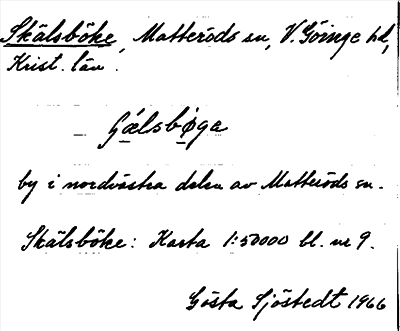 Skälsböke, Matteröds sn, V. Göinge hd,
Krist. län.
Gǽlsbǿga
by i nordvästra delen av Matteröds sn.
Skälsböke: Karta 1:50000 bl. nr 9.
Gösta Sjöstedt 1966